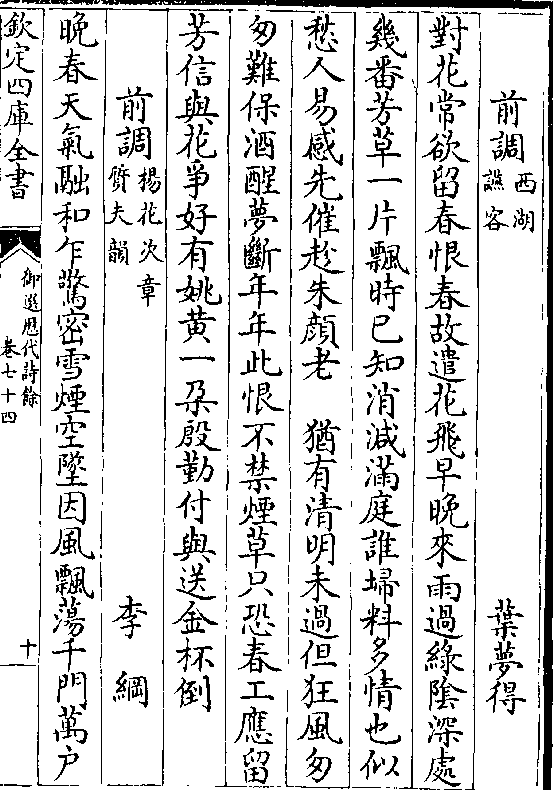 前調 西湖讌客 葉夢得
對花常欲留春恨春故遣花飛早晚來雨過綠陰深處
幾番芳草一片飄時已知消減滿庭誰埽料多情也似
愁人易感先催趁朱顏老 猶有清明未過但狂風匆
匆難保酒醒夢斷年年此恨不禁煙草只恐春工應留
芳信與花爭好有姚黄一朶殷勤付與送金杯倒
前調 楊花次章質夫韻 李綱
晚春天氣融和乍驚密雪煙空墜因風飄蕩千門萬户
欽定四庫全書
御選歷代詩餘
卷七十四
十